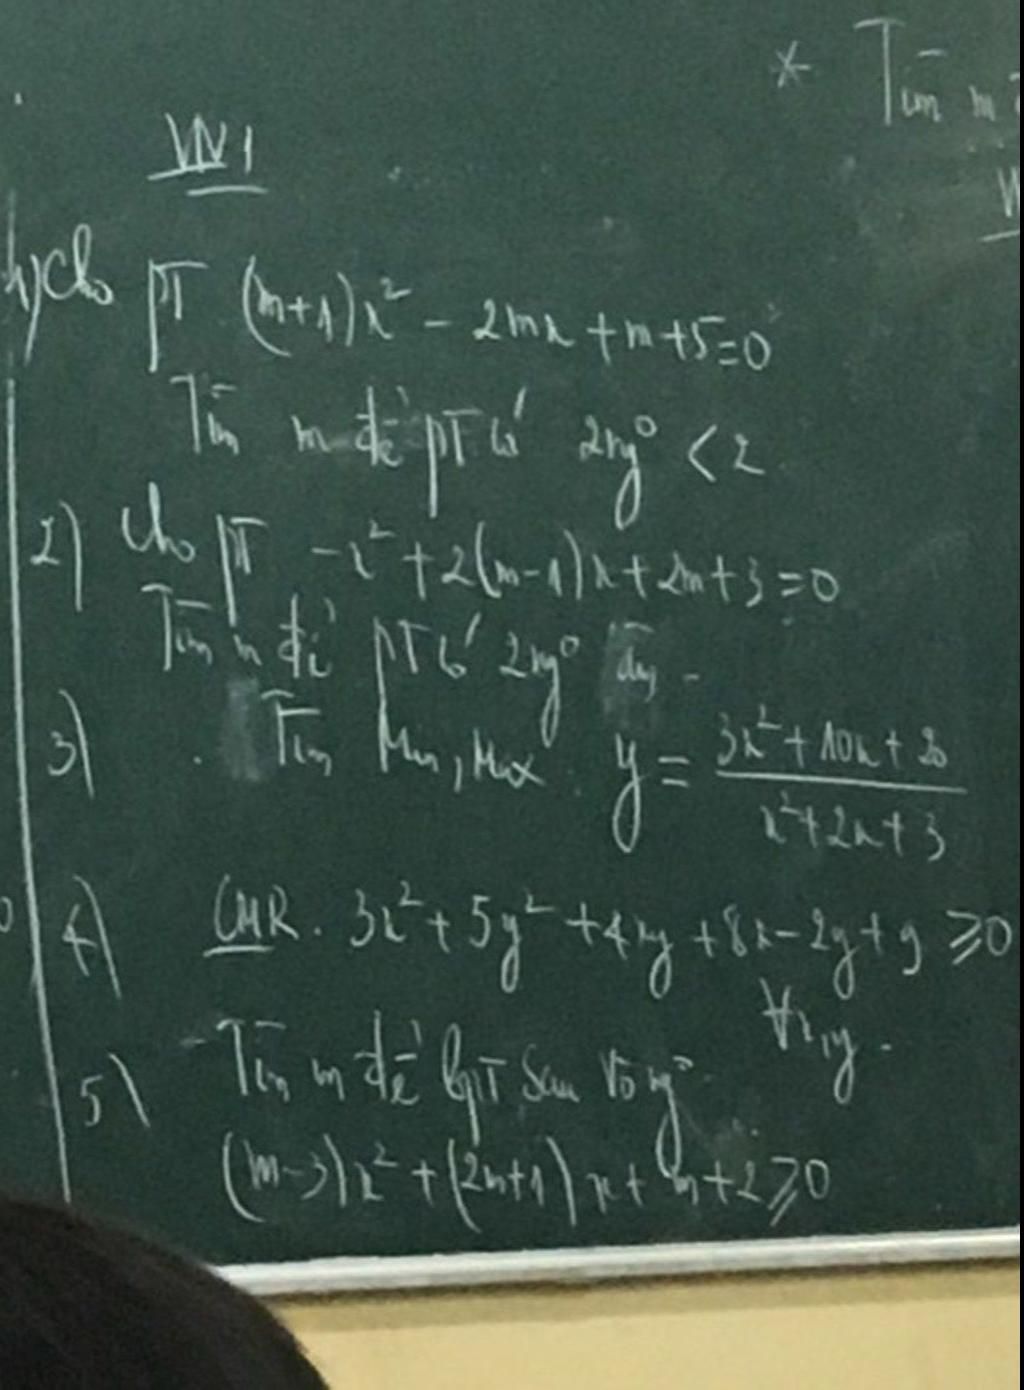 * Tìm m
VN1
1) Cho PT (m+1)x² - 2mx + m+5=0
Tìm m để PT có 2ng⁰ < 2
2) Cho PT -x² + 2(m-1)x + 2m+3=0
Tìm m để PT có 2ng⁰ dg.
3) Tìm Min, Max. y = (3x² + 10x + 20)/(x² + 2x + 3)
4) CMR. 3x² + 5y² + 4xy + 8x - 2y + 9 ⩾ 0
∀x,y.
5) Tìm m để bpT sau vô ng⁰.
(m-3)x² + (2m+1)x + m+2 ⩾ 0